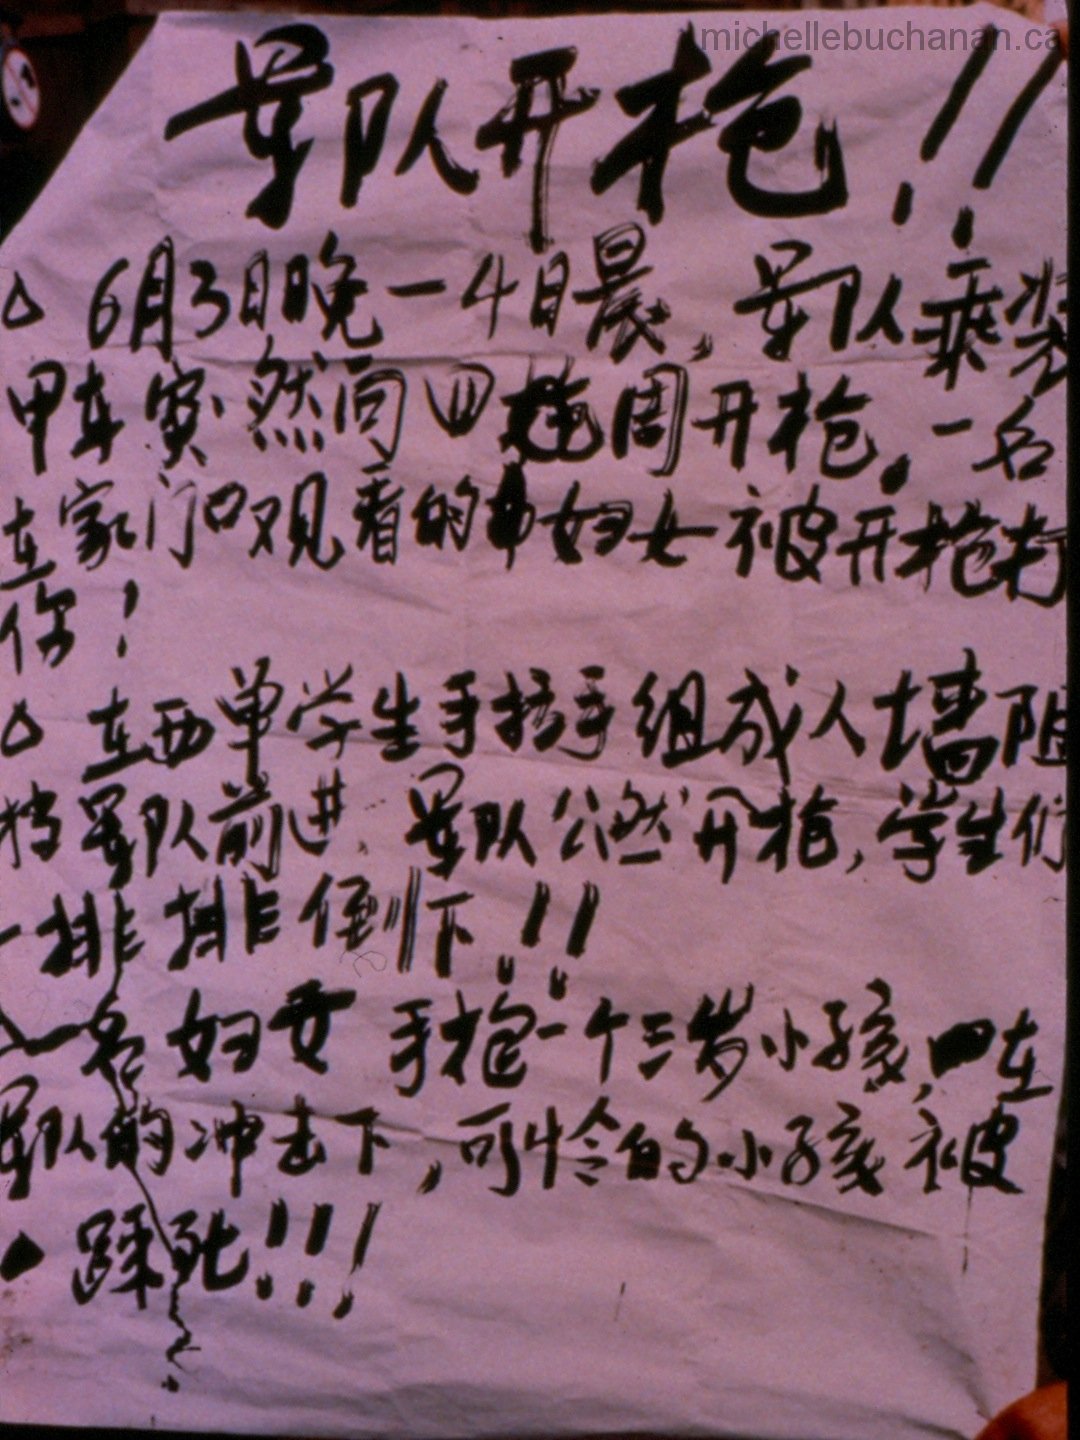 michellebuchanan.ca
军队开枪!!
△ 6月3日晚一4日晨,军队乘装
甲车突然向四周开枪,一名
在家门口观看的妇女被开枪打
伤!
△ 在西单学生手拉手组成人墙阻
挡军队前进,军队公然开枪,学生们
一排排倒下!!
一名妇女手抱一个三岁小孩,在
军队的冲击下,可怜的小孩被
踩死!!!